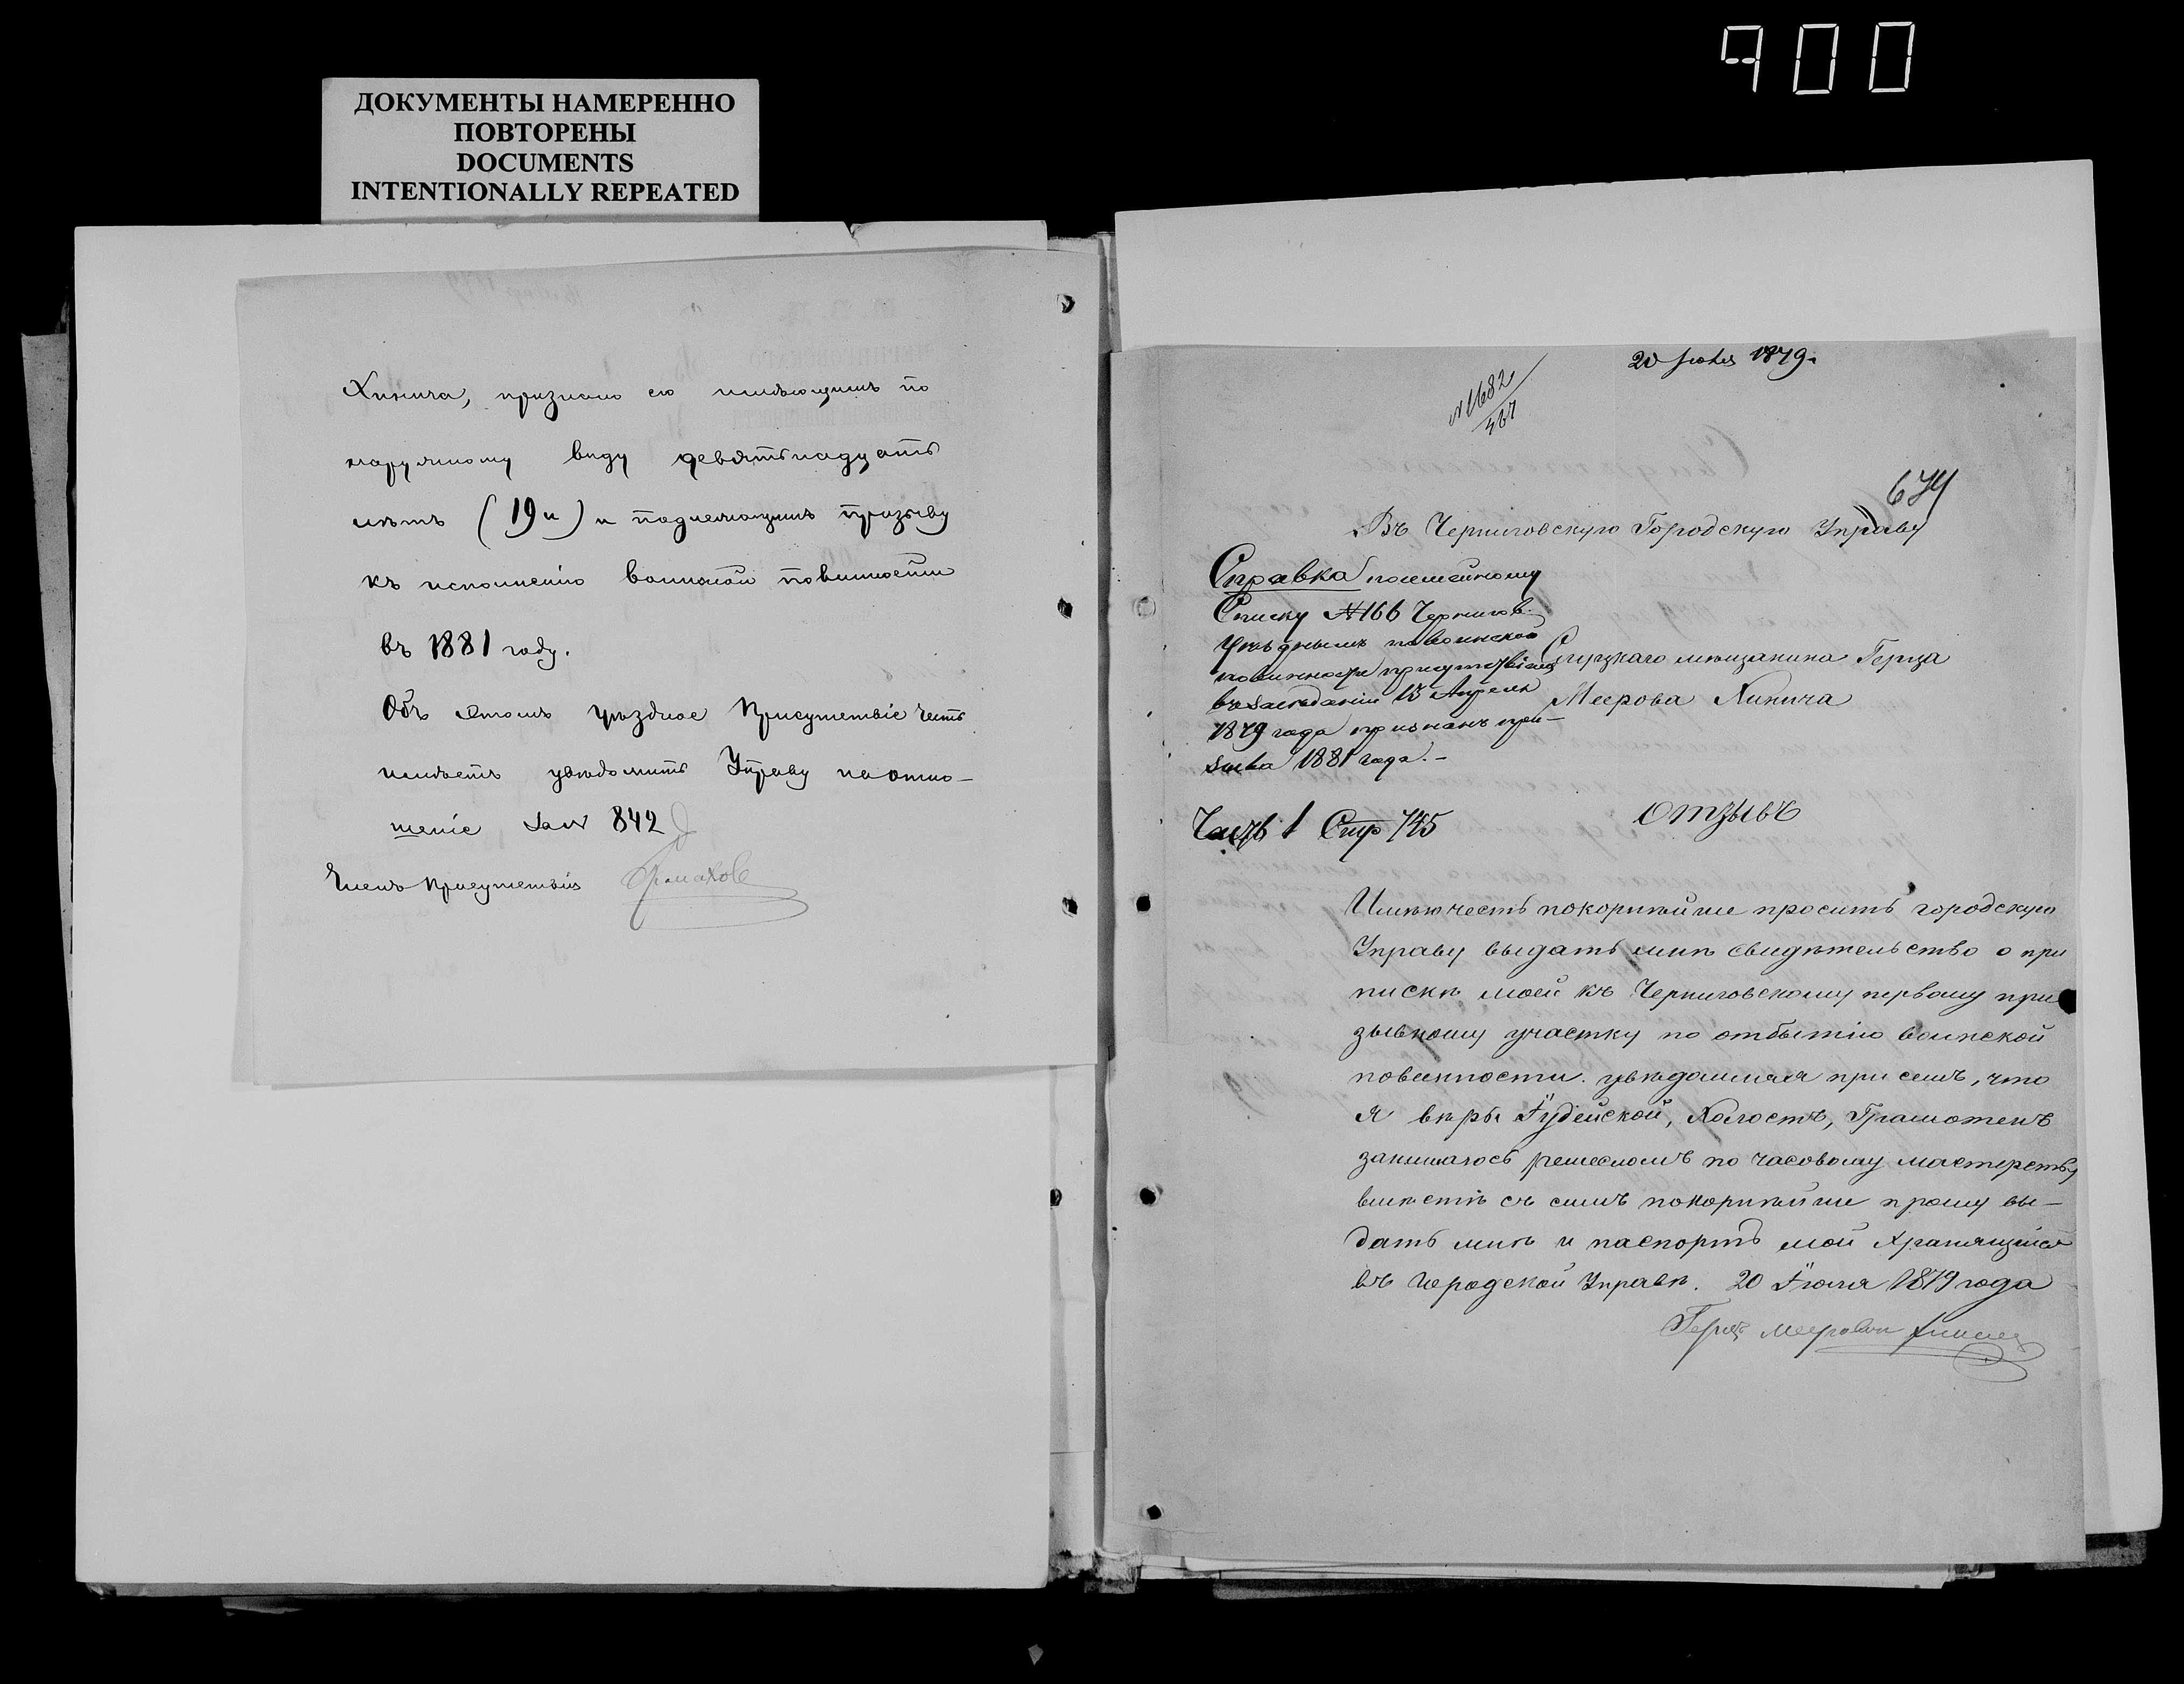 900
ДОКУМЕНТЫ НАМЕРЕННО
ПОВТОРЕНЫ
DOCUMENTS
INTENTIONALLY REPEATED
Хинича, признано его имѣющимъ по
наружному виду девятьнадцать
лѣтъ (19 л) и подлежащимъ призыву
къ исполненію воинской повинности
въ 1881 году.
Объ этомъ уѣздное Присутствіе честь
имѣетъ увѣдомить Управу на отно-
шеніе за № 842
Членъ Присутствія
20 Іюля 1879.
№ 1682
674
Въ Черниговскую Городскую Управу
Справка по семейному
Списку № 166 Чернигов.
Уѣзднымъ по воинской
повинности присутствіемъ
въ засѣданіи 13 Апрѣля
1879 года признанъ при-
зыва 1881 года.-
Часть 1 Стр 745
мѣщанина Герца
Меерова Хинича
Отзывъ
Имѣю честь покорнѣйше просить городскую
Управу выдать мнѣ свидѣтельство о при
пискѣ моей къ Черниговскому первому при
зывному участку по отбытію воинской
повинности. увѣдомляя при семъ, что
я вѣры Іудейской, Холостъ, Грамотенъ
занимаюсь ремесломъ по часовому мастерству
вмѣстѣ съ симъ покорнѣйше прошу вы-
дать мнѣ и паспортъ мой хранящійся
въ городской Управѣ. 20 Іюля 1879 года
Герцъ Мееровъ Хиничъ